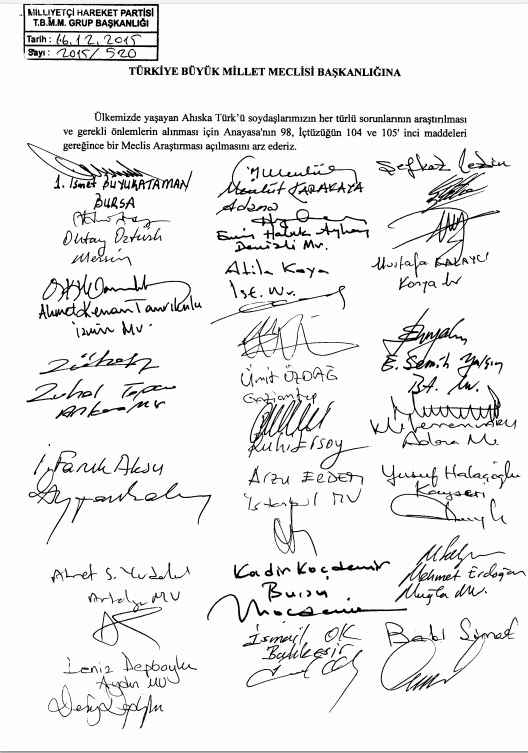 MİLLİYETÇİ HAREKET PARTİSİ
T.B.M.M. GRUP BAŞKANLIĞI
Tarih : 16.12.2015
Sayı : 2015/520
TÜRKİYE BÜYÜK MİLLET MECLİSİ BAŞKANLIĞINA
Ülkemizde yaşayan Ahıska Türk'ü soydaşlarımızın her türlü sorunlarının araştırılması
ve gerekli önlemlerin alınması için Anayasa'nın 98, İçtüzüğün 104 ve 105' inci maddeleri
gereğince bir Meclis Araştırması açılmasını arz ederiz.
1. İsmet BÜYÜKATAMAN
BURSA
Mevlüt KARAKAYA
Adana
Şefkat
Oktay Öztürk
Mersin
Emin Haluk Ayhan
Denizli Mv.
Mustafa KALAYCI
Konya Mv
Ahmet Kenan Tanrıkulu
İzmir Mv.
Atila Kaya
İst. Mv.
Zuhal Topcu
Ankara MV
Ümit ÖZDAĞ
Gaziantep
E. Semih Yalçın
Ruhi Ersoy
Adana M.
İ. Faruk Aksu
Arzu ERDEM
İstanbul MV
Yusuf Halaçoğlu
Kayseri
Ahmet S.
Antalya MV
Kadir Koçdemir
Bursa
Mehmet Erdoğan
Muğla Mv.
Deniz Depboylu
Aydın MV
İsmail OK
Balıkesir